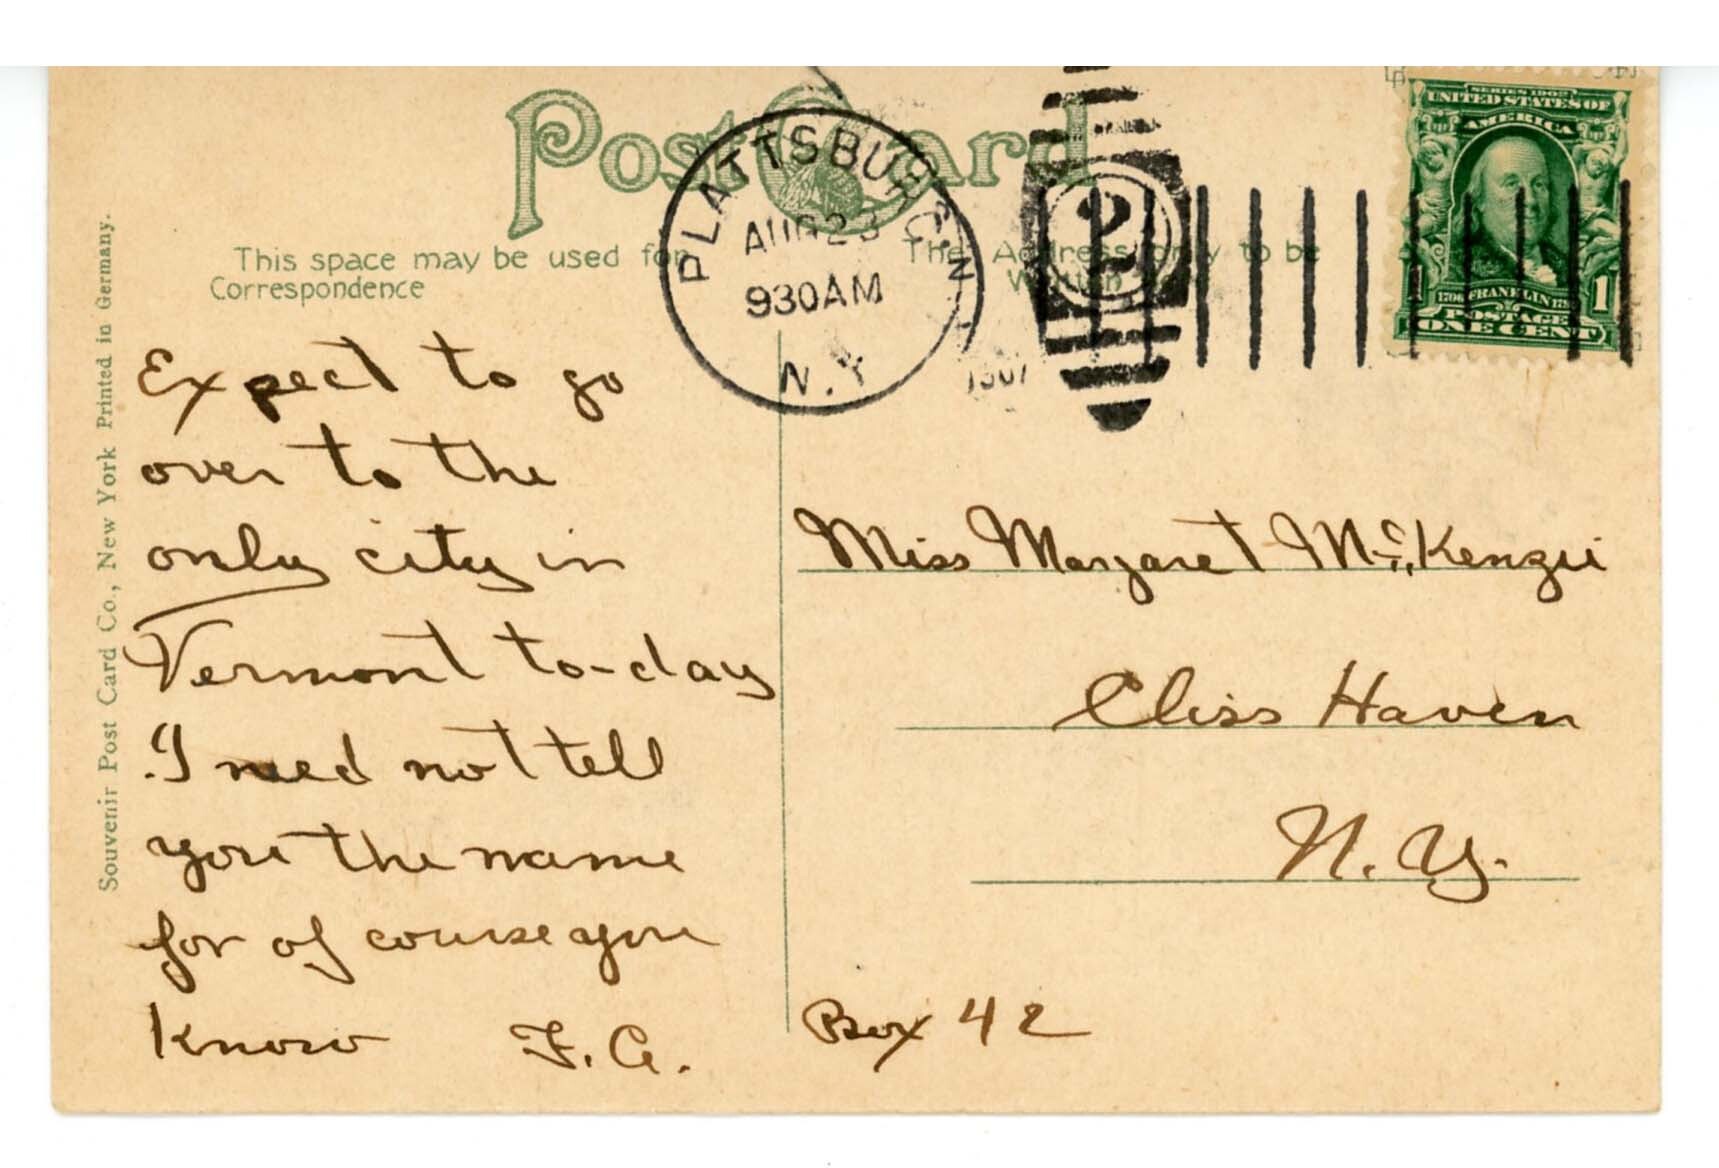 Post Card
PLATTSBURG
AUG 23
930AM
N.Y.
1907
2
SERIES 1902
UNITED STATES OF
AMERICA
1706 FRANKLIN 1790
POSTAGE
ONE CENT
1
This space may be used for
Correspondence
The Address only to be
Souvenir Post Card Co., New York Printed in Germany.
Expect to go
over to the
only city in
Vermont to-day
I need not tell
you the name
for of course you
know F. A.
Miss Margaret McKenzie
Cliss Haven
N. Y.
Box 42